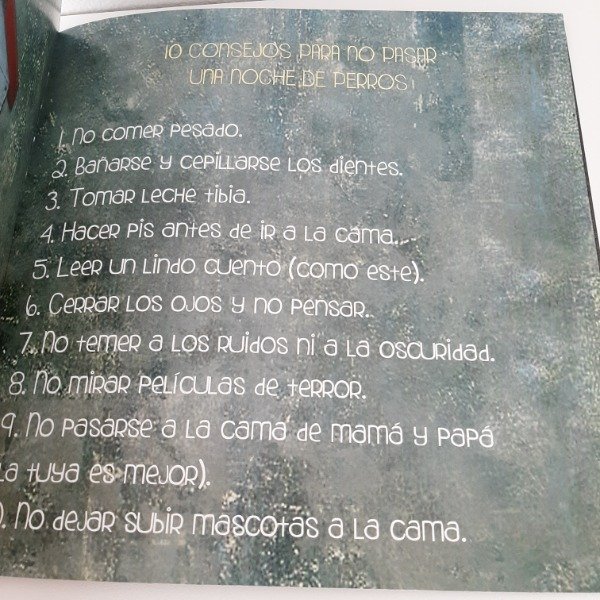 10 CONSEJOS PARA NO PASAR
UNA NOCHE DE PERROS
1. No comer pesado.
2. Bañarse y cepillarse los dientes.
3. Tomar leche tibia.
4. Hacer pis antes de ir a la cama.
5. Leer un lindo cuento (como este).
6. Cerrar los ojos y no pensar.
7. No temer a los ruidos ni a la oscuridad.
8. No mirar películas de terror.
9. No pasarse a la cama de mamá y papá
la tuya es mejor).
. No dejar subir mascotas a la cama.